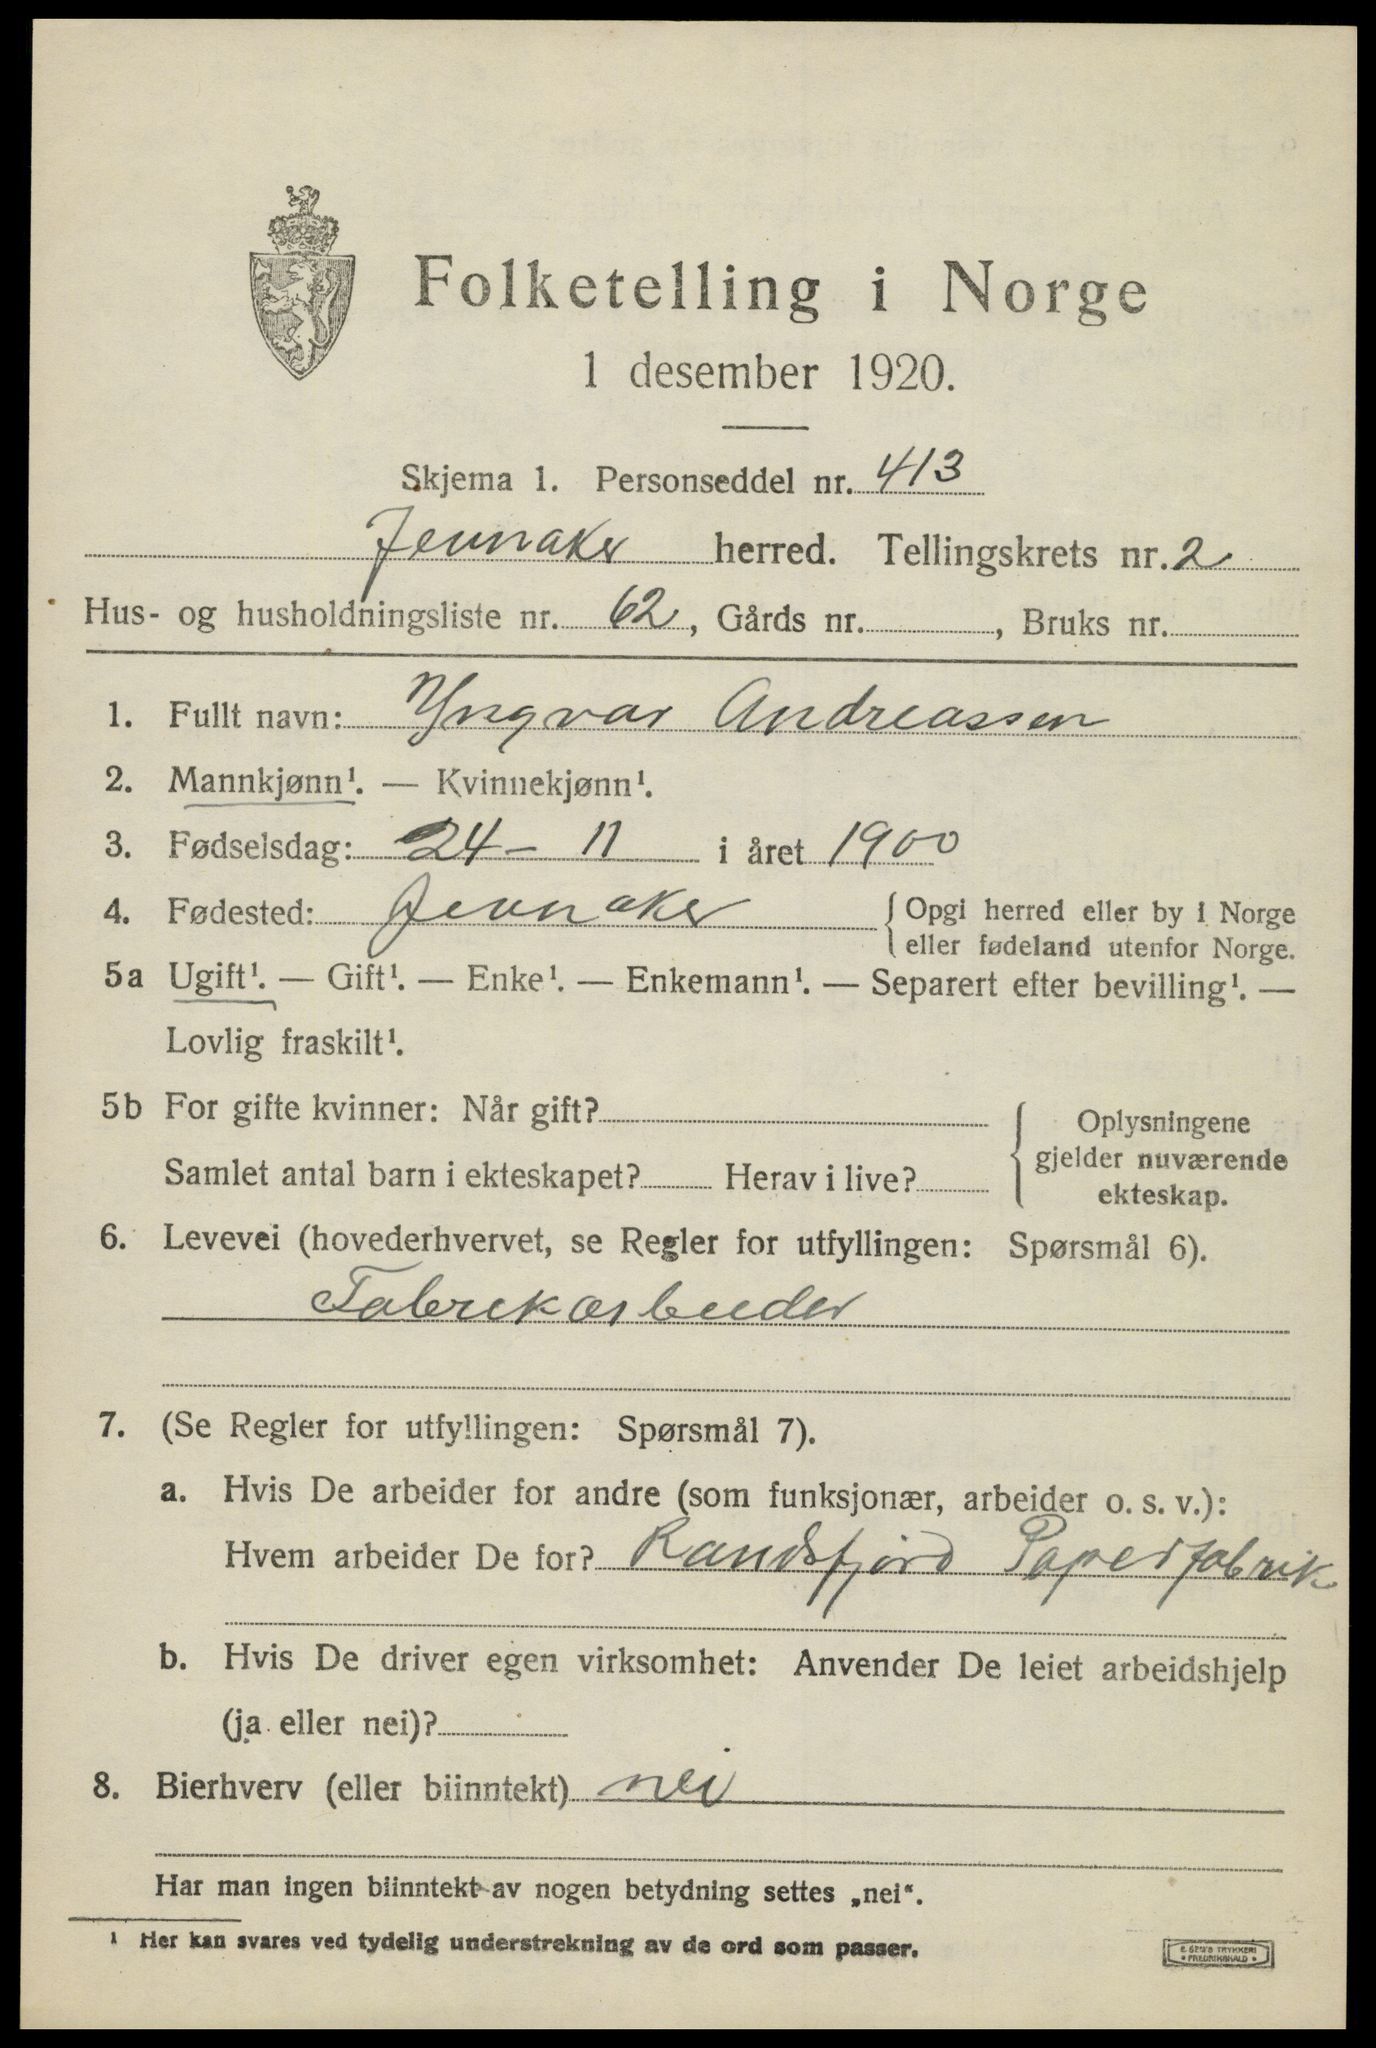 Folketelling i Norge
1 desember 1920.
Skjema 1. Personseddel nr. 413
Jevnaker herred. Tellingskrets nr. 2
Hus- og husholdningsliste nr. 62, Gårds nr. , Bruks nr.
1. Fullt navn: Yngvar Andreassen
2. Mannkjønn¹. — Kvinnekjønn¹.
3. Fødselsdag: 24 – 11 i året 1900
4. Fødested: Jevnaker { Opgi herred eller by i Norge
eller fødeland utenfor Norge.
5a Ugift¹. — Gift¹. — Enke¹. — Enkemann¹. — Separert efter bevilling¹. —
Lovlig fraskilt¹.
5b For gifte kvinner: Når gift?
Samlet antal barn i ekteskapet? Herav i live?
{ Oplysningene
gjelder nuværende
ekteskap.
6. Levevei (hovederhvervet, se Regler for utfyllingen: Spørsmål 6).
Fabrikarbeider
7. (Se Regler for utfyllingen: Spørsmål 7).
a. Hvis De arbeider for andre (som funksjonær, arbeider o. s. v.):
Hvem arbeider De for? Randsfjord Paperfabrik
b. Hvis De driver egen virksomhet: Anvender De leiet arbeidshjelp
(ja eller nei)?
8. Bierhverv (eller biinntekt) nei
Har man ingen biinntekt av nogen betydning settes „nei“.
¹ Her kan svares ved tydelig understrekning av de ord som passer.
E. SEM'S TRYKKERI
• FREDRIKSHALD •